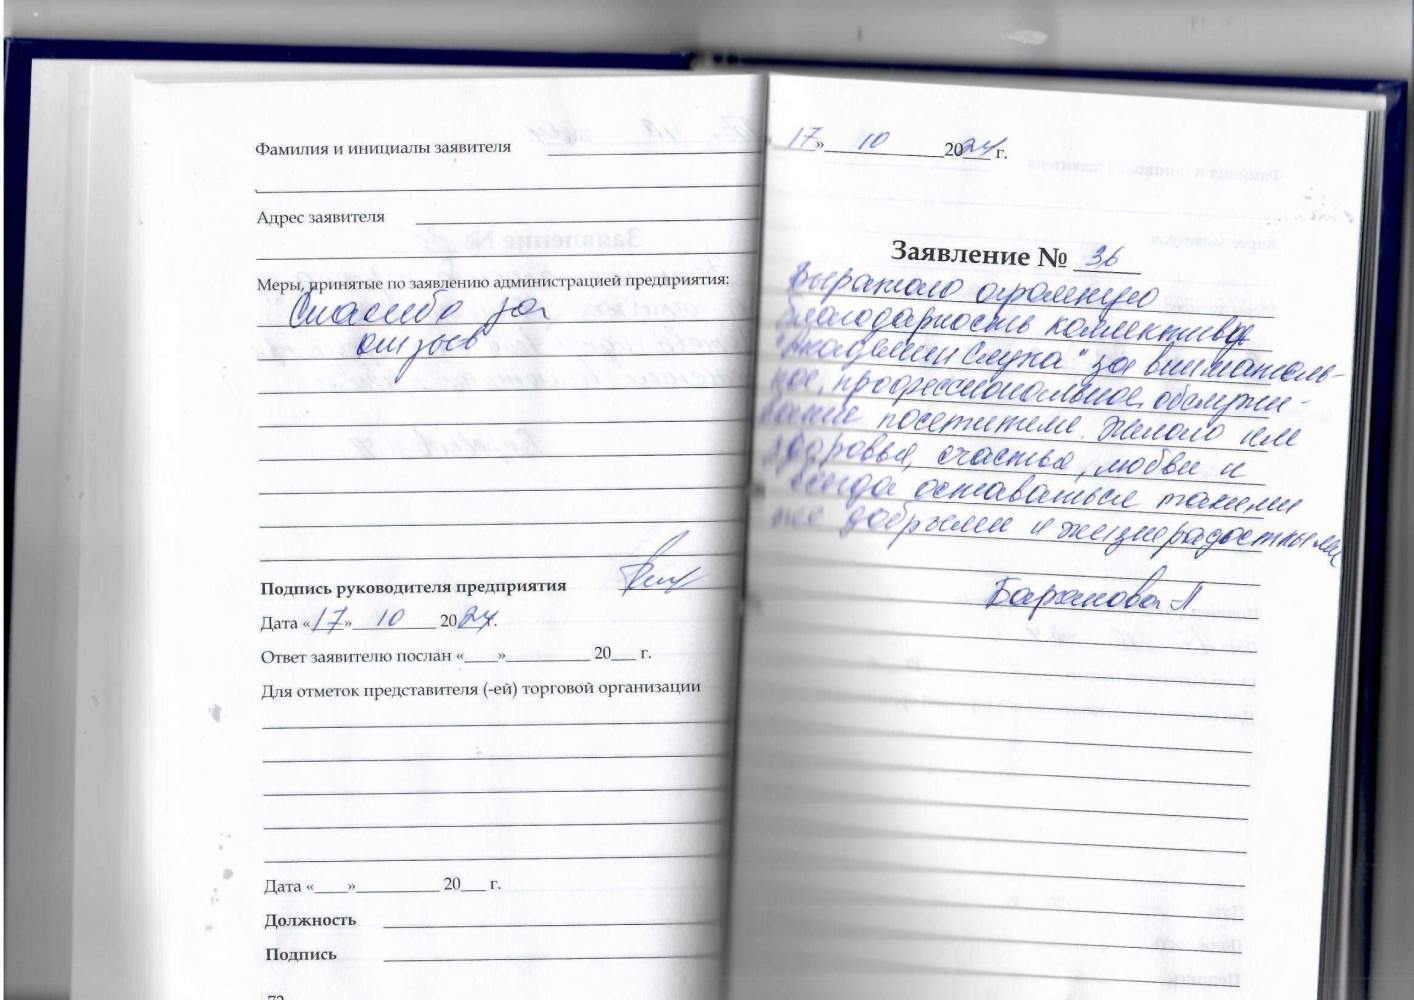 Фамилия и инициалы заявителя
Адрес заявителя
Меры, принятые по заявлению администрацией предприятия:
Спасибо за
отзыв
Подпись руководителя предприятия
Дата «17» 10 2024г.
Ответ заявителю послан «____»__________ 20___ г.
Для отметок представителя (-ей) торговой организации
Дата «____»__________ 20___ г.
Должность
Подпись
72
17» 10 2024 г.
Заявление № 36
Выражаю огромную
благодарность коллективу
"Академии Слуха" за вниматель-
ное, профессиональное обслужи-
вание посетителей. Желаю им
здоровья, счастья, любви и
всегда оставаться такими
же добрыми и жизнерадостными